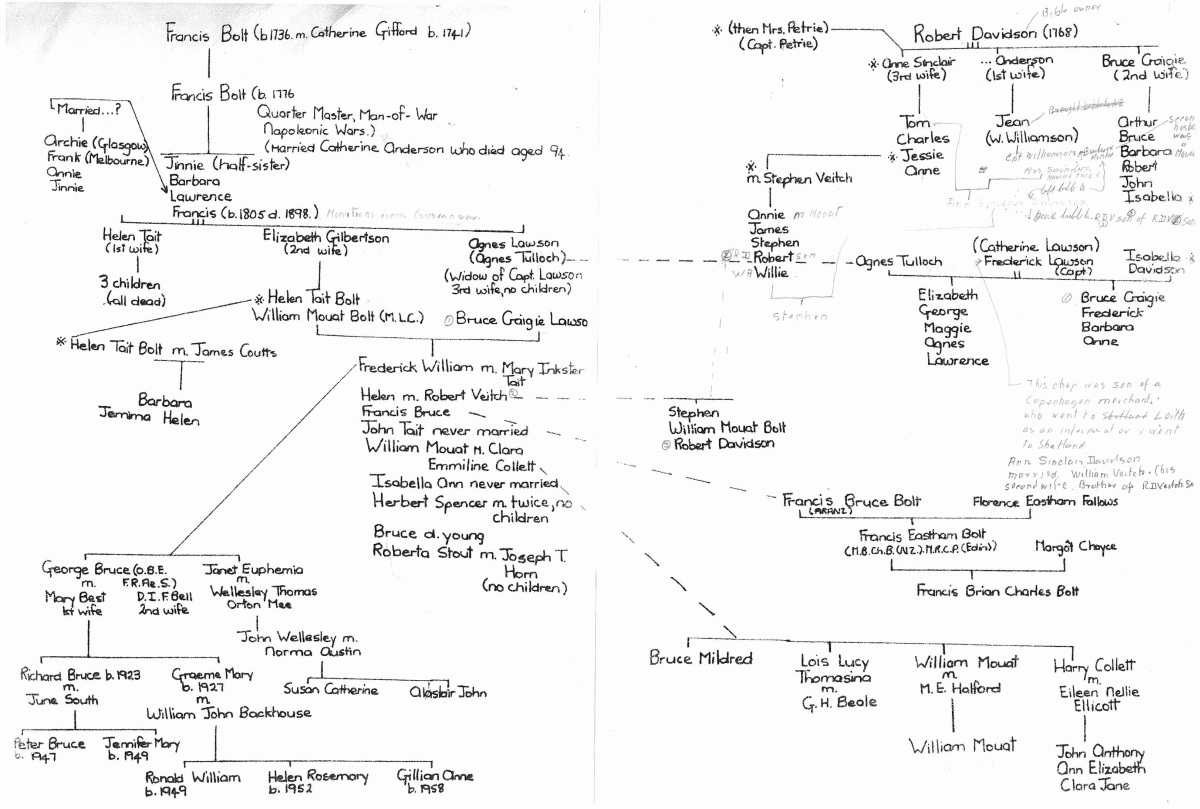 Francis Bolt (b1736. m. Catherine Gifford b. 1741)
Francis Bolt (b. 1776
Quarter Master, Man-of-War
Napoleonic Wars.)
(Married Catherine Anderson who died aged 94.
(Married...?
Archie (Glasgow)
Frank (Melbourne)
Annie
Jinnie
Jinnie (half-sister)
Barbara
Lawrence
Francis (b.1805 d. 1898.)
Helen Tait
(1st wife)
3 children
(all dead)
Elizabeth Gilbertson
(2nd wife)
Agnes Lawson
(Agnes Tulloch)
(Widow of Capt. Lawson
3rd wife, no children)
* Helen Tait Bolt
William Mouat Bolt (M.L.C.)
① Bruce Craigie Lawso
* Helen Tait Bolt m. James Coutts
Barbara
Jemima Helen
Frederick William m. Mary Inkster
Tait
Helen m. Robert Veitch ②
Francis Bruce
John Tait never married
William Mouat M. Clara
Emmiline Collett
Isabella Ann never married
Herbert Spencer m. twice, no
children
Bruce d. young
Roberta Stout m. Joseph T.
Horn
(no children)
George Bruce (O.B.E.
F.R.Ae.S.)
m.
Mary Best
1st wife
D.I.F. Bell
2nd wife
Janet Euphemia
m.
Wellesley Thomas
Orton Mee
John Wellesley m.
Norma Austin
Susan Catherine
Alastair John
Richard Bruce b. 1923
m.
June South
Graeme Mary
b. 1927
m.
William John Backhouse
Peter Bruce
b. 1947
Jennifer Mary
b. 1949
Ronald William
b. 1949
Helen Rosemary
b. 1952
Gillian Anne
b. 1958
* (then Mrs. Petrie)
(Capt. Petrie)
Bible owner
Robert Davidson (1768)
* Anne Sinclair
(3rd wife)
... Anderson
(1st wife)
Bruce Craigie
(2nd wife)
Tom
Charles
* Jessie
Anne
Jean
(W. Williamson)
Arthur
Bruce
Barbara
Robert
John
Isabella *
*
m. Stephen Veitch
Annie m Mouat
James
Stephen
Robert
Willie
Stephen
Agnes Tulloch
(Catherine Lawson)
Frederick Lawson
(Capt)
Isabella *
Davidson
Elizabeth
George
Maggie
Agnes
Lawrence
① Bruce Craigie
Frederick
Barbara
Anne
This chap was son of a
Copenhagen merchant.
who went to Shetland Leith
as an infant or went
to Shetland
Ann Sinclair Davidson
married William Veitch. (his
second wife. Brother of
Stephen
William Mouat Bolt
② Robert Davidson
Francis Bruce Bolt
(ARANZ)
Florence Eastham Fallows
Francis Eastham Bolt
(M.B.Ch.B.(N.Z.). M.R.C.P.(Edin))
Margôt Choyce
Francis Brian Charles Bolt
Bruce Mildred
Lois Lucy
Thomasina
m.
G. H. Beale
William Mouat
m.
M. E. Halford
William Mouat
Harry Collett
m.
Eileen Nellie
Ellicott
John Anthony
Ann Elizabeth
Clara Jane